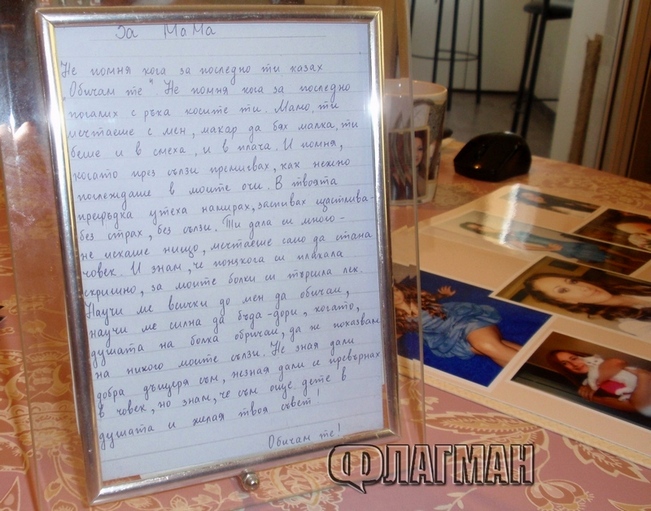 За МаМа
Не помня кога за последно ти казах
"Обичам те". Не помня кога за последно
погалих с ръка косите ти. Мамо, ти
мечтаеше с мен, макар да бях малка, ти
беше и в смеха, и в плача. И помня,
когато през сълзи премигвах, как нежно
поглеждаше в моите очи. В твоята
прегръдка утеха намирах, заспивах щастлива-
без страх, без сълзи. Ти дала си много-
не искаше нищо, мечтаеше само да стана
човек. И знам, че понякога си плакала
скришно, за моите болки си търсила лек.
Научи ме всички до мен да обичам,
научи ме силна да бъда-дори, когато,
душата на болка обричам, да не показвам
на никого моите сълзи. Не зная дали
добра дъщеря съм, незная дали се превърнах
в човек, но знам, че съм още дете в
душата и жалая твоя съвет!
Обичам те!
ФЛАГМАН